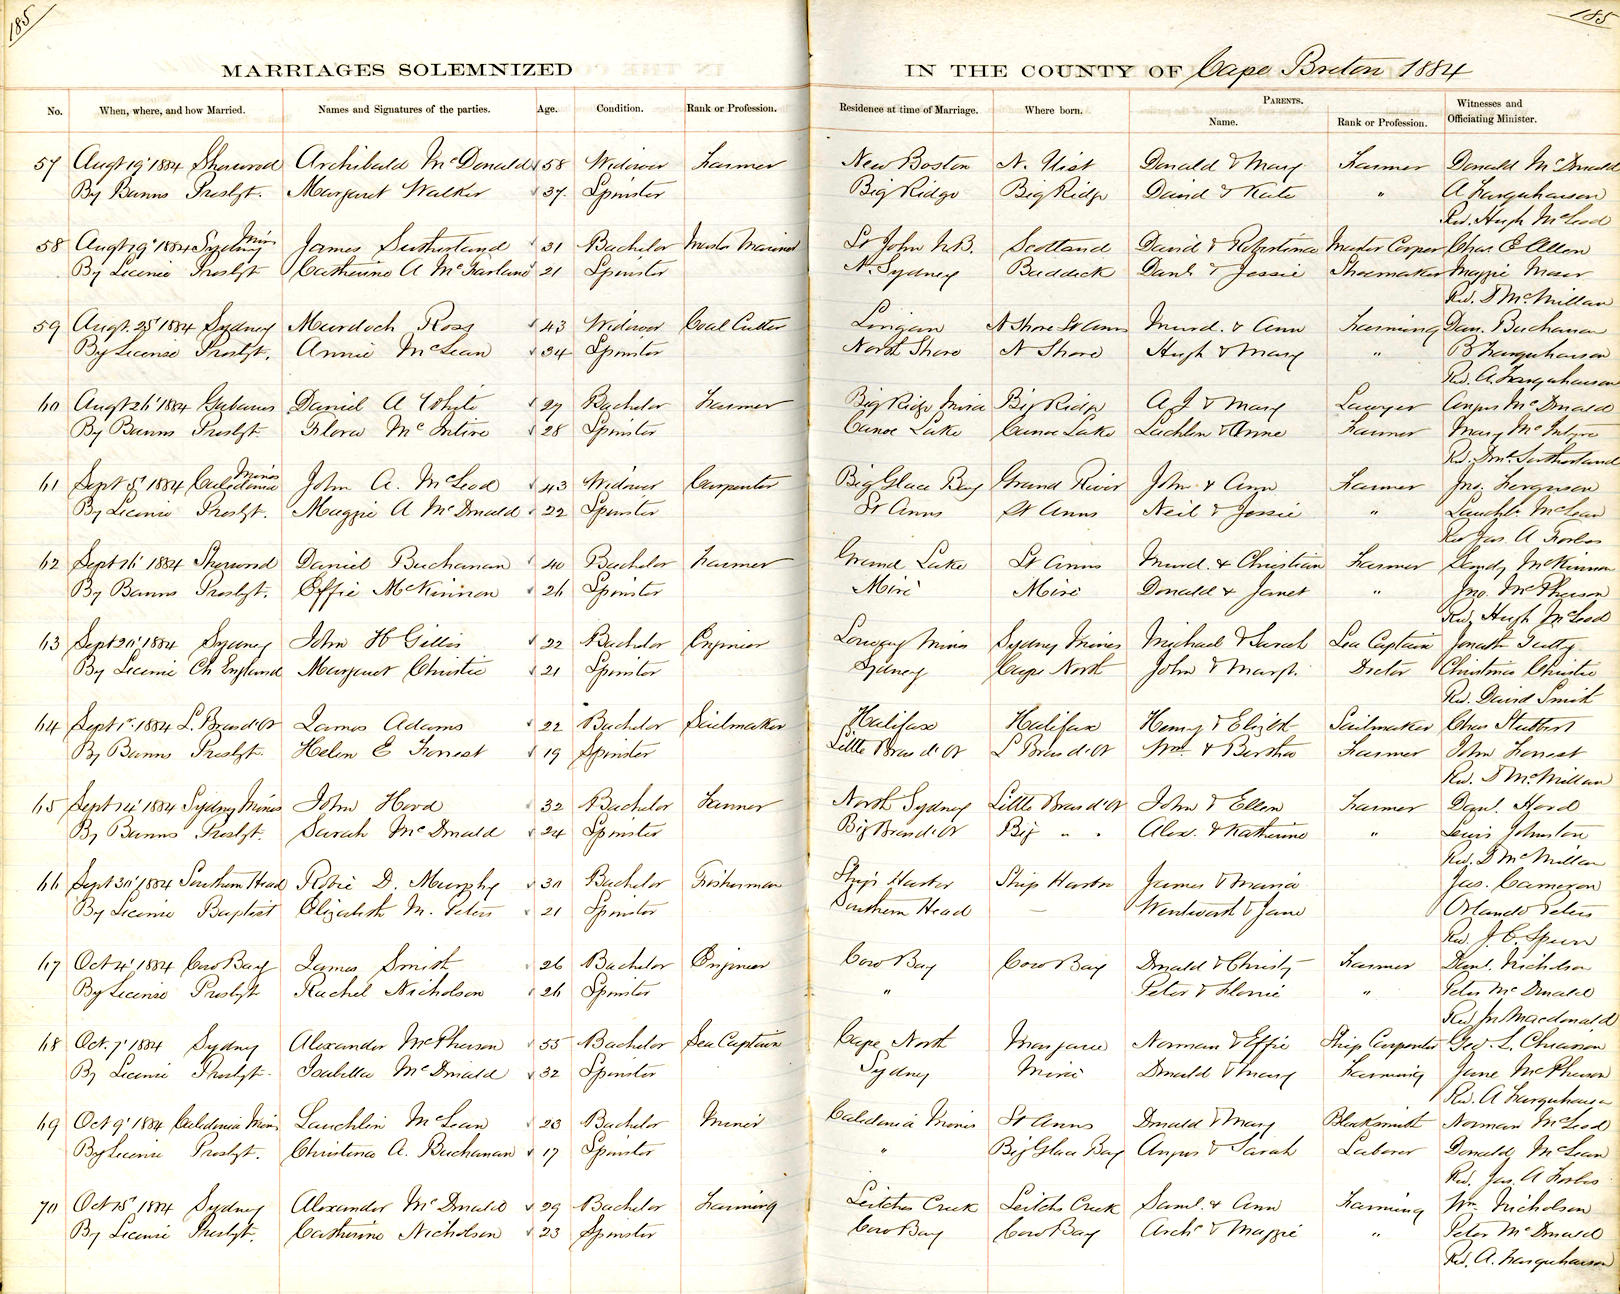 185
185
MARRIAGES SOLEMNIZED IN THE COUNTY OF Cape Breton 1884
No. When, where, and how Married. Names and Signatures of the parties. Age. Condition. Rank or Profession. Residence at time of Marriage. Where born. PARENTS. Name. Rank or Profession. Witnesses and Officiating Minister.
57 Augt 19' 1884 Sherwood Archibald McDonald 58 Widower Farmer New Boston N. Uist Donald & Mary Farmer Donald McDonald
By Banns Presbyt. Margaret Walker 37 Spinster Big Ridge Big Ridge David & Kate " A Farquharson
Rev. Hugh McLeod
58 Augt 19' 1884 Sydney Mins James Sutherland 31 Bachelor Master Mariner St John N.B. Scotland David & Robertina Master Cooper Chas. E Allen
By License Presbyt Catherine A McFarland 21 Spinster N. Sydney Baddeck Danl. & Jessie Shoemaker Maggie Moser
Rev. D McMillan
59 Augt. 25' 1884 Sydney Murdoch Ross 43 Widower Coal Cutter Lingan N Shore St Anns Murd. & Ann Farming Dan. Buchanan
By License Presbyt. Annie McLean 34 Spinster North Shore N Shore Hugh & Mary " B Farquharson
Rev. A. Farquharson
60 Augt 26' 1884 Gabarus Daniel A White 27 Bachelor Farmer Big Ridge Mira Big Ridge A J & Mary Lawyer Angus McDonald
By Banns Presbyt. Flora McIntire 28 Spinster Canoe Lake Canoe Lake Lachlin & Anne Farmer Mary McIntyre
Rev. Sutherland
61 Sept 5' 1884 Caledonia Mines John A. McLeod 43 Widower Carpenter Big Glace Bay Grand River John & Ann Farmer Jno. Ferguson
By License Presbyt. Maggie A McDonald 22 Spinster St Anns St Anns Neil & Jessie " Lauchln. McLean
Rev Jas. A Forbes
62 Sept 16' 1884 Sherwood Daniel Buchanan 40 Bachelor Farmer Grand Lake St Anns Murd. & Christian Farmer Sandy McKinnon
By Banns Presbyt. Effie McKinnon 26 Spinster Miré Miré Donald & Janet " Jno. McPherson
Rev. Hugh McLeod
63 Sept 20' 1884 Sydney John H Gillis 22 Bachelor Engineer Lorway Mines Sydney Mines Michael & Sarah Sea Captain Tutty
By License Ch England Margaret Christie 21 Spinster Sydney Cape North John & Margt. Doctor Christmas Christie
Rev. David Smith
64 Sept 1st. 1884 L. Bras d'Or James Adams 22 Bachelor Sailmaker Halifax Halifax Henry & Elizth Sailmaker Chas Stubbert
By Banns Presbyt. Helen E Forrest 19 Spinster Little Bras d'Or L Bras d'Or Wm. & Bertha Farmer John Forrest
Rev. D McMillan
65 Sept 24' 1884 Sydney Mines John Hood 32 Bachelor Farmer North Sydney Little Bras d'Or John & Ellen Farmer Danl. Hood
By Banns Presbyt. Sarah McDonald 24 Spinster Big Bras d'Or Big " " Alex. & Katherine " Lewis Johnston
Rev. D McMillan
66 Sept 30' 1884 Southern Head Robie D. Murphy 30 Bachelor Fisherman Ship Harbor Ship Harbor James & Maria Jas. Cameron
By License Baptist Elizabeth M. Peters 21 Spinster Southern Head — Wentworth & Jane Orlando Peters
Rev. J. C. Spurr
67 Oct 4' 1884 Cow Bay James Smith 26 Bachelor Engineer Cow Bay Cow Bay Donald & Christy Farmer Danl. Nicholson
By License Presbyt Rachel Nicholson 26 Spinster " Peter & Flossie " Peter McDonald
Rev Jn Macdonald
68 Oct. 7' 1884 Sydney Alexander McPherson 55 Bachelor Sea Captain Cape North Margaree Norman & Effie Ship Carpenter Geo. L. Chiasson
By License Presbyt. Isabella McDonald 32 Spinster Sydney Miré Donald & Mary Farming Jane McPherson
Rev. A Farquharson
69 Oct 9' 1884 Caledonia Mines Lauchlin McLean 23 Bachelor Miner Caledonia Mines St Anns Donald & Mary Blacksmith Norman McLeod
By License Presbyt. Christina A. Buchanan 17 Spinster " Big Glace Bay Angus & Sarah Laborer Donald McLean
Rev. Jas. A Forbes
70 Oct 15' 1884 Sydney Alexander McDonald 29 Bachelor Farming Leitches Creek Leitchs Creek Saml. & Ann Farming Wm. Nicholson
By License Presbyt. Catherine Nicholson 23 Spinster Cow Bay Cow Bay Archd & Maggie " Peter McDonald
Rev. A. Farquharson